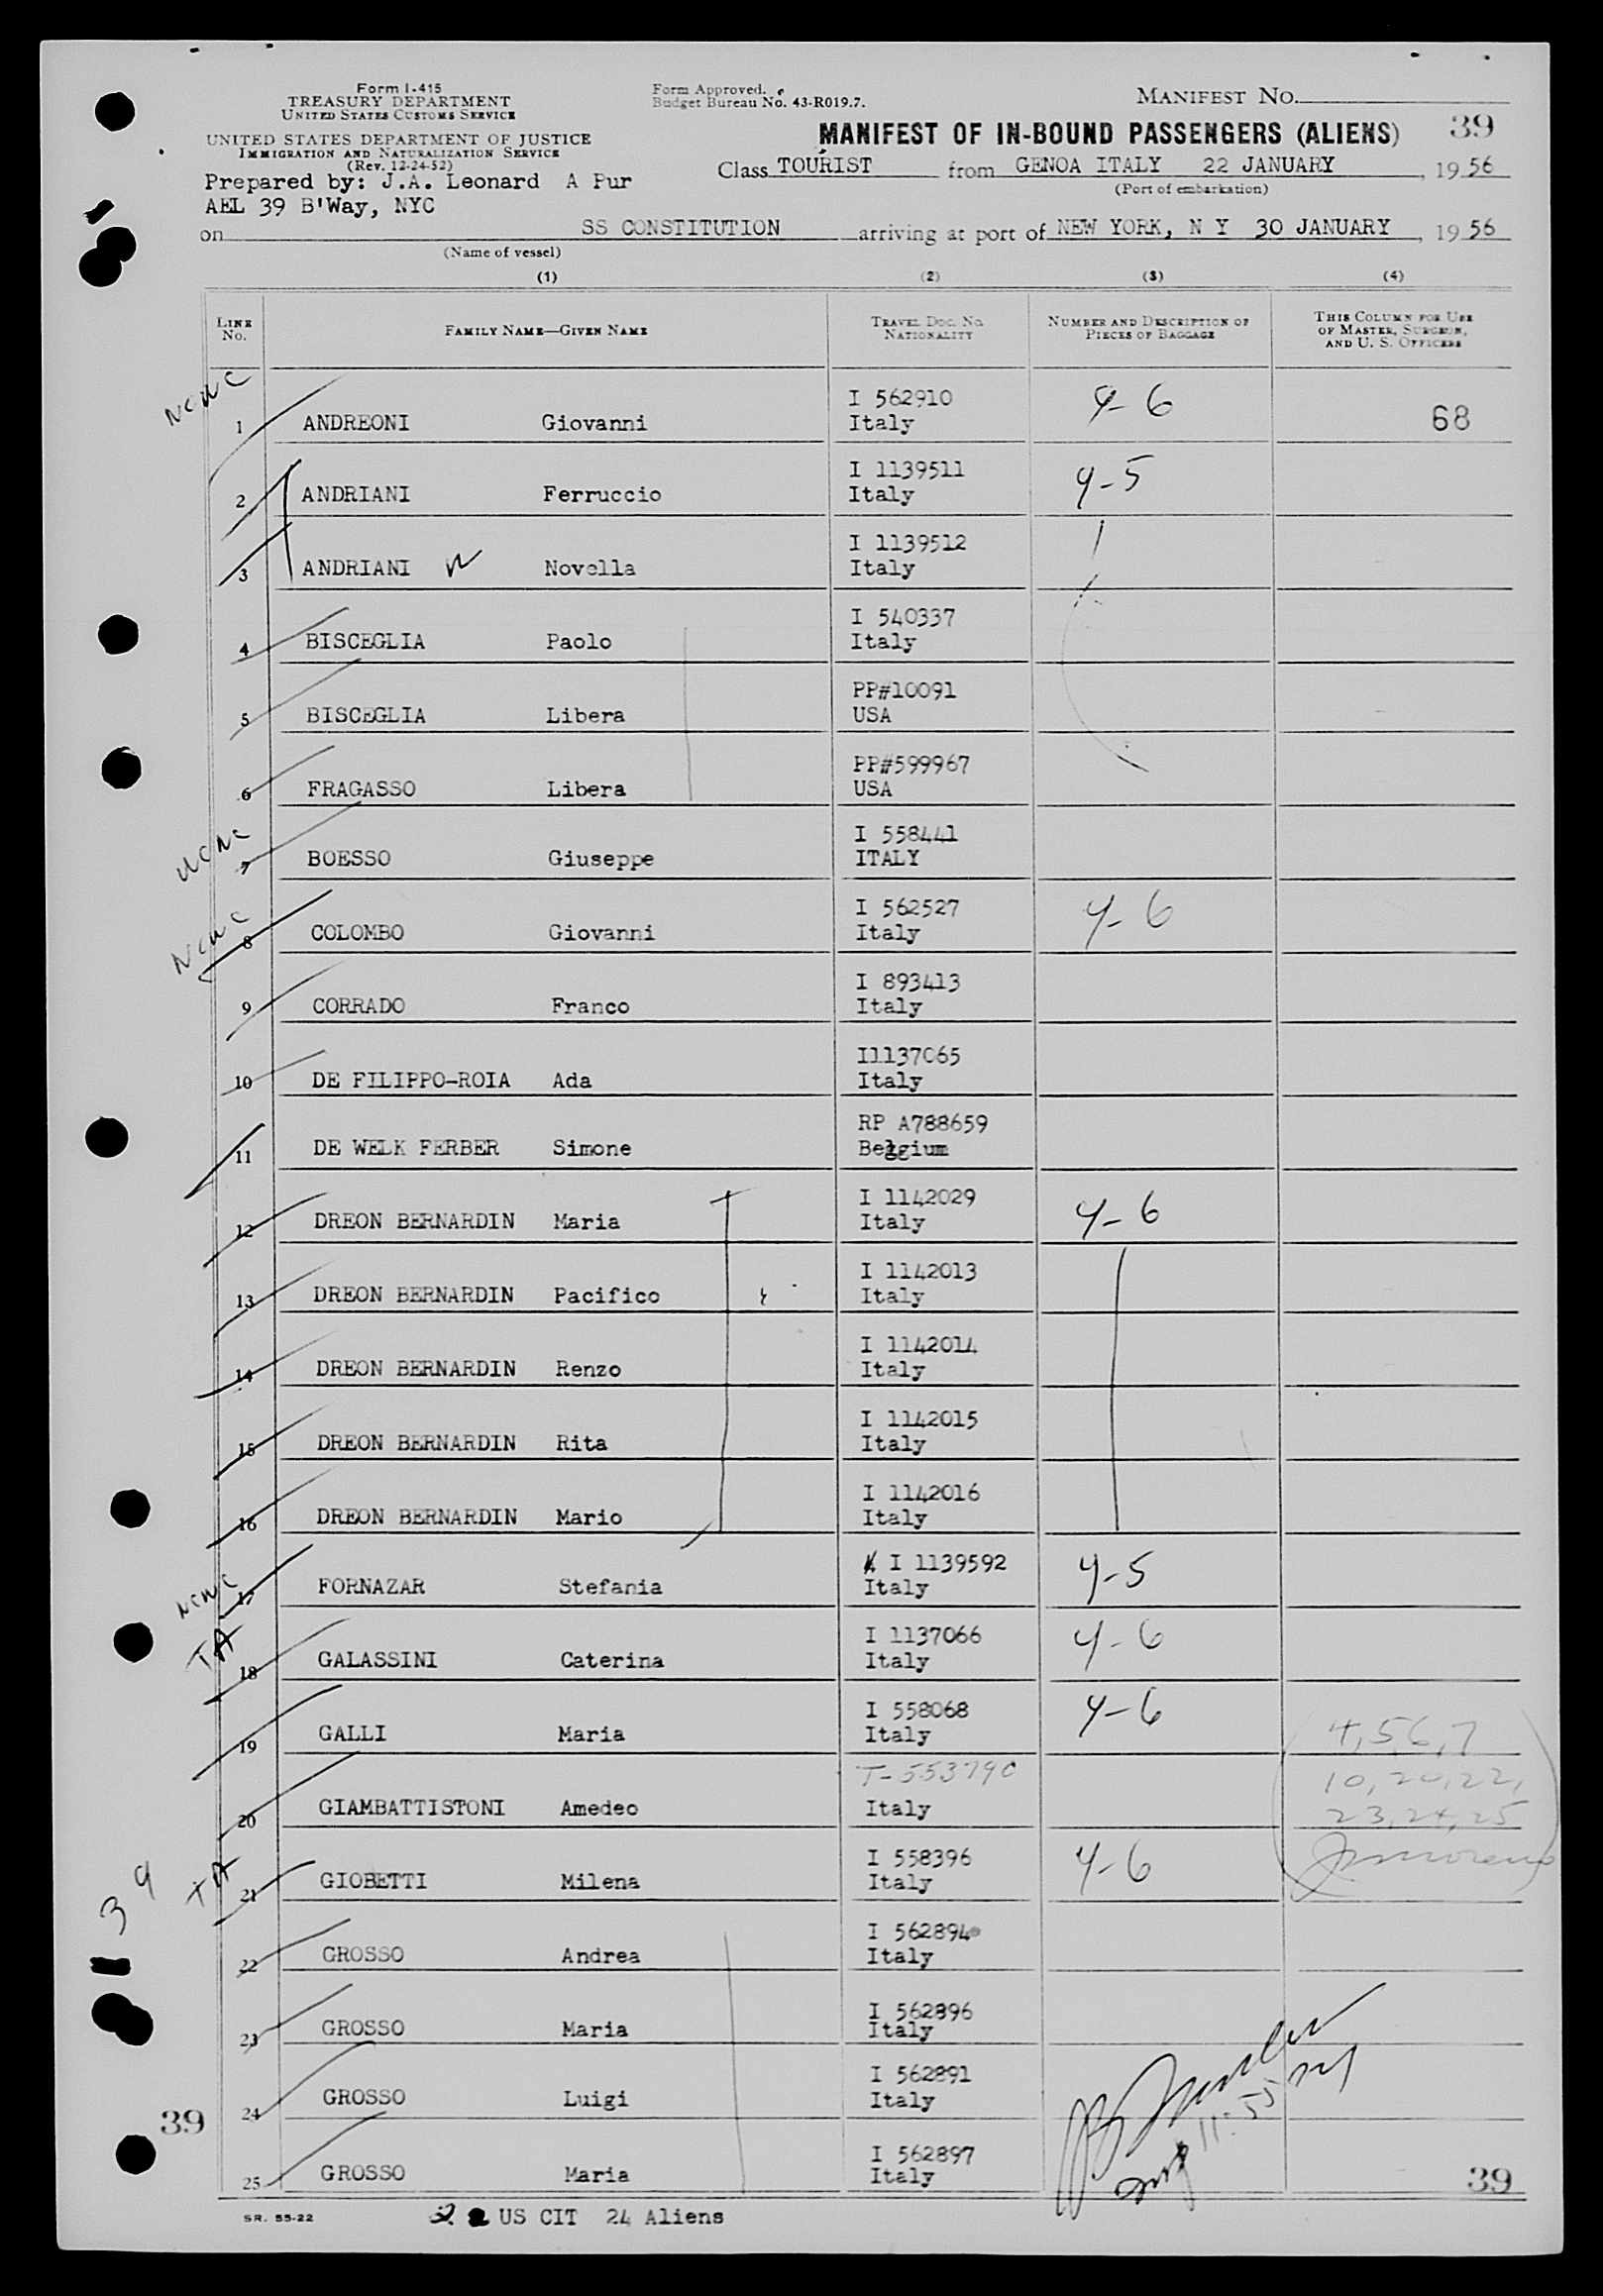 Form I-415
TREASURY DEPARTMENT
UNITED STATES CUSTOMS SERVICE
UNITED STATES DEPARTMENT OF JUSTICE
IMMIGRATION AND NATURALIZATION SERVICE
(Rev. 12-24-52)
Prepared by: J.A. Leonard A Pur
AEL 39 B'Way, NYC
Form Approved.
Budget Bureau No. 43-R019.7.
MANIFEST NO.
39
MANIFEST OF IN-BOUND PASSENGERS (ALIENS)
Class TOURIST from GENOA ITALY 22 JANUARY, 1956
(Port of embarkation)
on SS CONSTITUTION arriving at port of NEW YORK, N Y 30 JANUARY, 1956
(Name of vessel)
(1) (2) (3) (4)
LINE No. FAMILY NAME—GIVEN NAME TRAVEL DOC. NO. NATIONALITY NUMBER AND DESCRIPTION OF PIECES OF BAGGAGE THIS COLUMN FOR USE OF MASTER, SURGEON, AND U. S. OFFICERS
NCNC
1 ANDREONI Giovanni I 562910 Italy 4-6 68
2 ANDRIANI Ferruccio I 1139511 Italy 4-5
3 ANDRIANI Novella I 1139512 Italy
4 BISCEGLIA Paolo I 540337 Italy
5 BISCEGLIA Libera PP#10091 USA
6 FRAGASSO Libera PP#599967 USA
NCNC
7 BOESSO Giuseppe I 558441 ITALY
NCNC
8 COLOMBO Giovanni I 562527 Italy 4-6
9 CORRADO Franco I 893413 Italy
10 DE FILIPPO-ROIA Ada I1137065 Italy
11 DE WELK FERBER Simone RP A788659 Belgium
12 DREON BERNARDIN Maria I 1142029 Italy 4-6
13 DREON BERNARDIN Pacifico I 1142013 Italy
14 DREON BERNARDIN Renzo I 1142014 Italy
15 DREON BERNARDIN Rita I 1142015 Italy
16 DREON BERNARDIN Mario I 1142016 Italy
NCNC
17 FORNAZAR Stefania I 1139592 Italy 4-5
TA
18 GALASSINI Caterina I 1137066 Italy 4-6
19 GALLI Maria I 558068 Italy 4-6
4,5,6,7
10,20,22,
23,24,25
20 GIAMBATTISTONI Amedeo I-553790 Italy
TA
21 GIOBETTI Milena I 558396 Italy 4-6
139
22 GROSSO Andrea I 562894 Italy
23 GROSSO Maria I 562896 Italy
24 GROSSO Luigi I 562891 Italy
39
25 GROSSO Maria I 562897 Italy
11:55
39
SR. 55-22
2 US CIT 24 Aliens